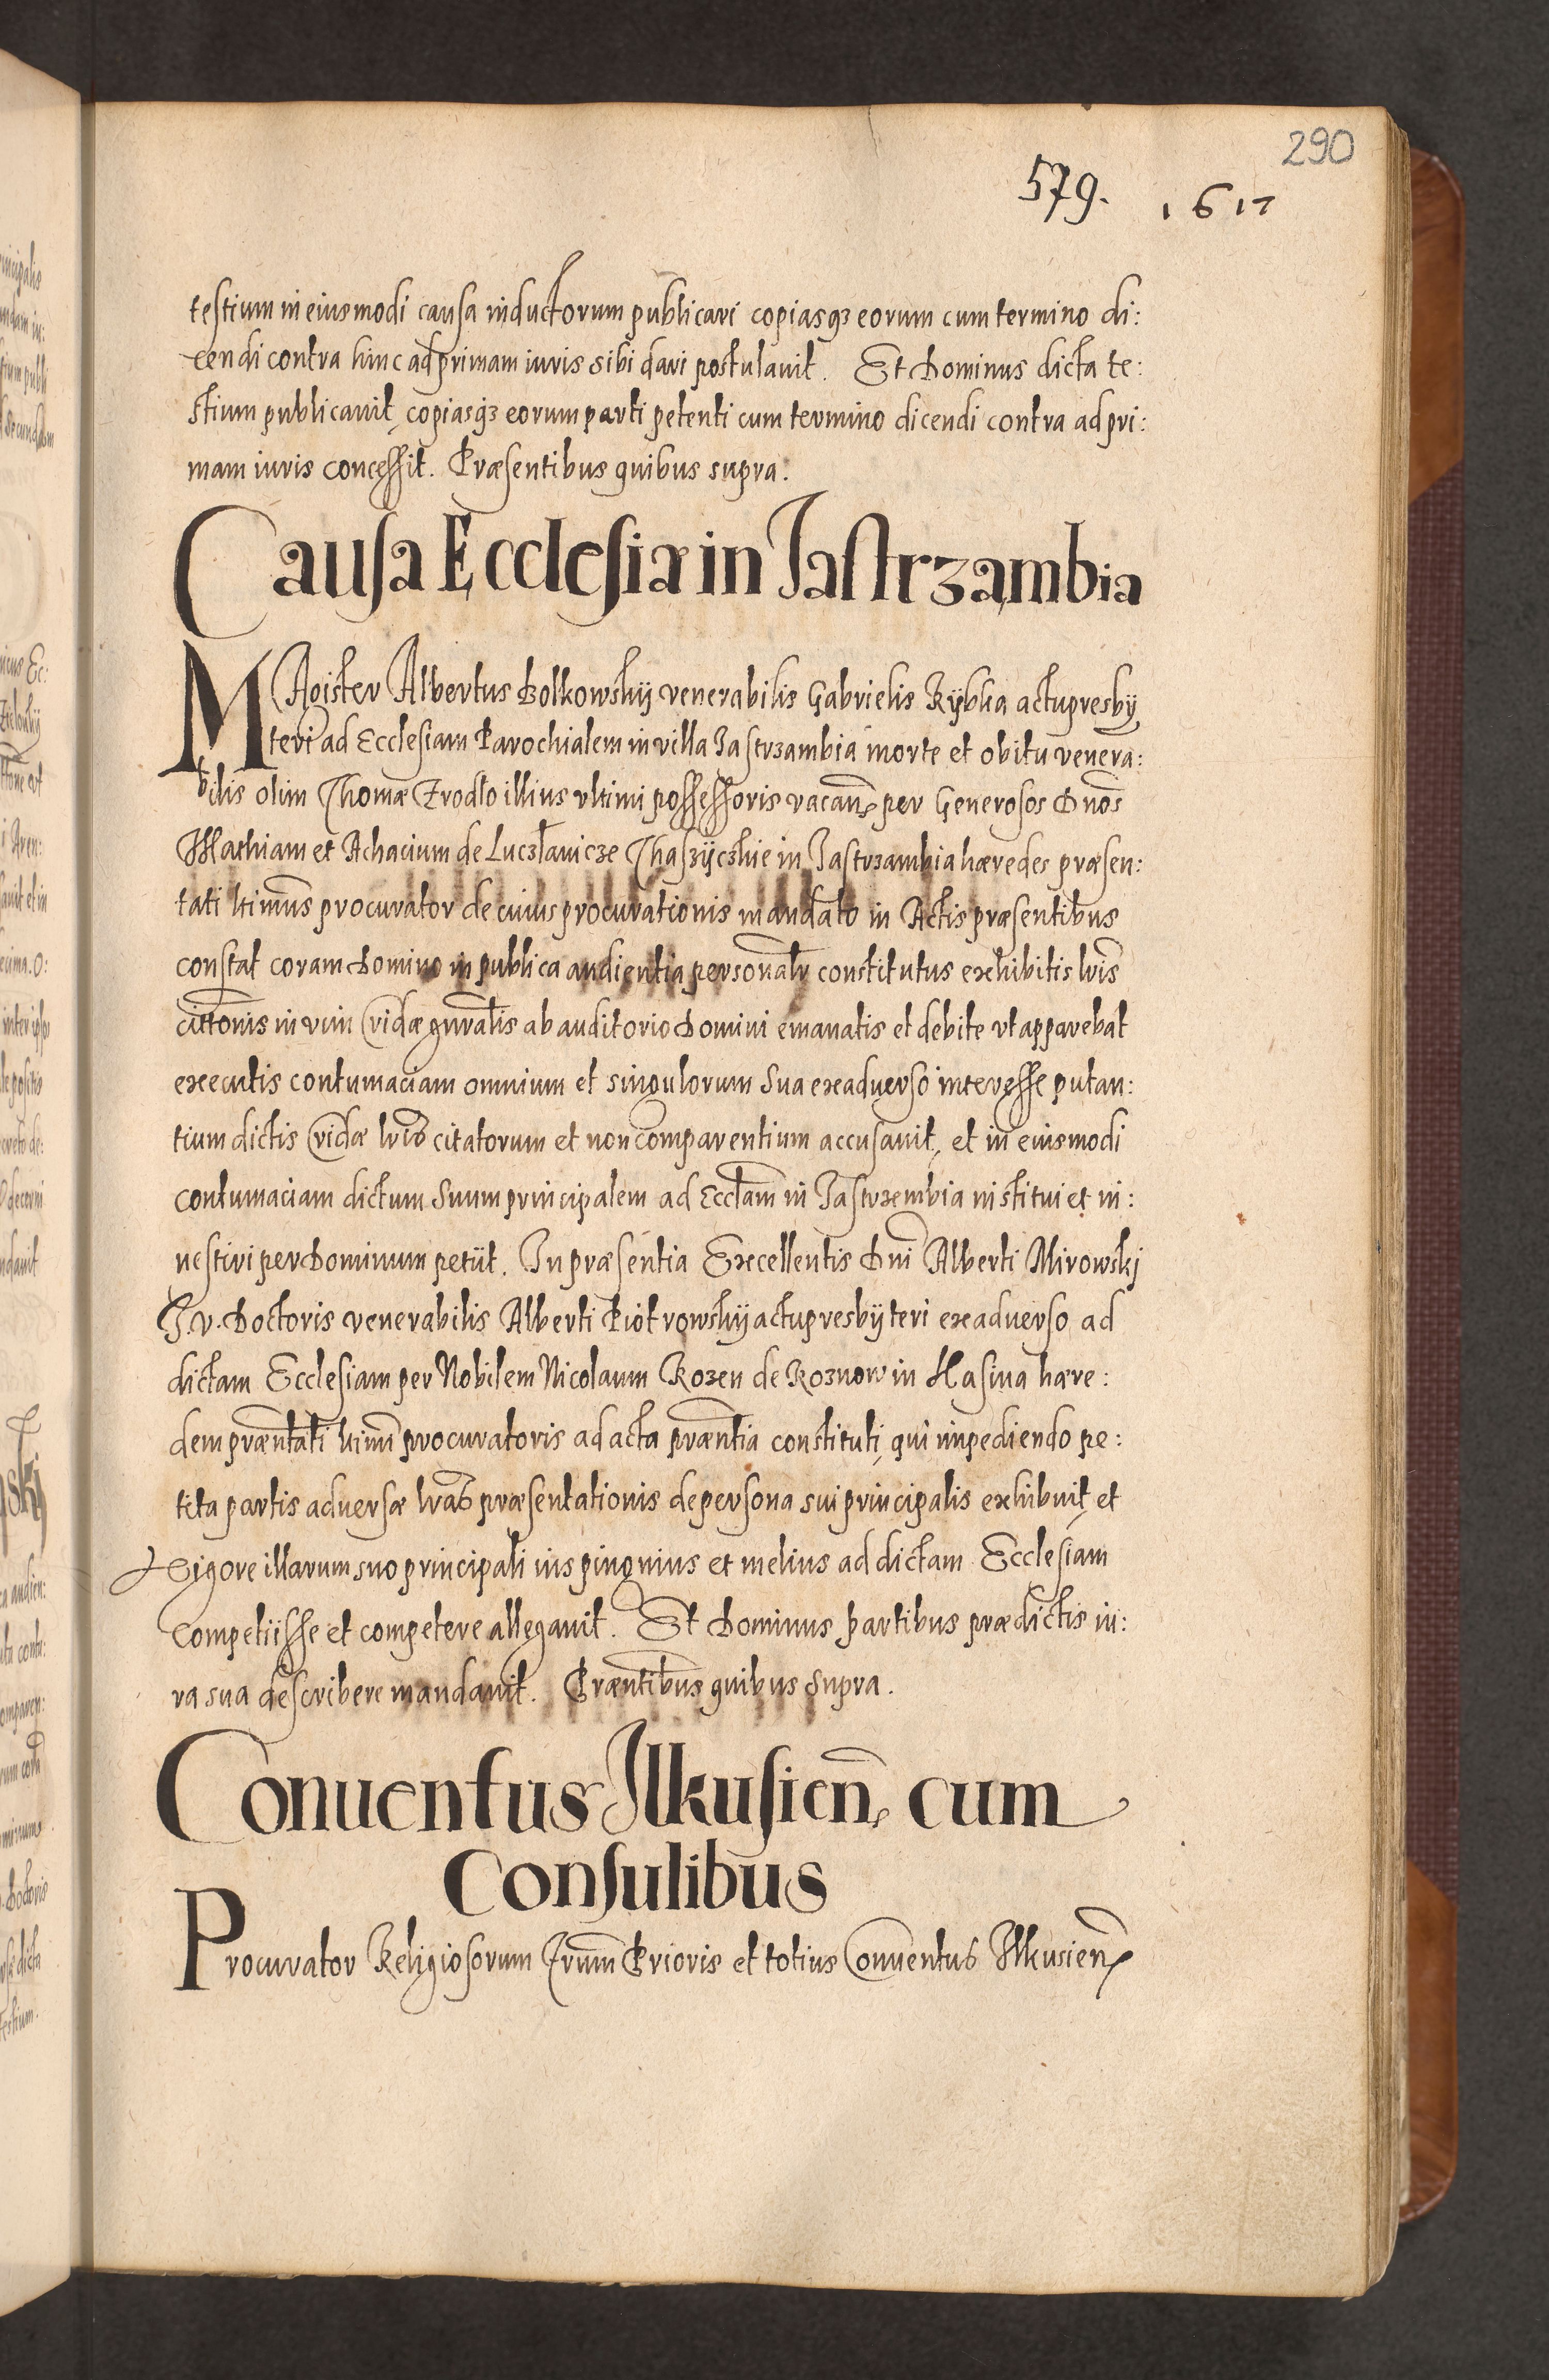 290
579. 1617
testium in eiusmodi causa inductorum publicari copiasq3 eorum cum termino di:
cendi contra hinc ad primam iuris sibi dari postulauit. Et Dominus dicta te:
stium publicauit, copiasq3 eorum parti petenti cum termino dicendi contra ad pri:
mam iuris concessit. Præsentibus quibus supra.
Causa Ecclesiæ in Jastrzambia
MAgister Albertus Bolkowskij venerabilis Gabrielis Rÿblia actupresby
teri ad Ecclesiam Parochialem in villa Jastrzambia morte et obitu venera:
bilis olim Thomæ Zrodlo illius vltimi possessoris vacañ per Generosos Dnos
Mathiam et Achacium de Luczlawicze Thaszÿczkie in Jastrzambia hæredes præsen:
tati ltimus procurator de cuius procurationis mandato in Actis præsentibus
constat coram Domino in publica audientia personalr constitutus exhibitis lris
cittonis in vim Cridæ gnralis ab auditorio Domini emanatis et debite vt apparebat
executis contumaciam omnium et singulorum sua exaduerso interesse putan:
tium dictis Cridæ lris citatorum et non comparentium accusauit, et in eiusmodi
contumaciam dictum suum principalem ad Ecclam in Jastrzembia institui et in:
uestiri per Dominum petiit. In præsentia Excellentis Dni Alberti Mirowskj
J. v. Doctoris venerabilis Alberti Piotrowskij actupresbyteri exaduerso ad
dictam Ecclesiam per Nobilem Nicolaum Rozen de Roznow in Hasina hære:
dem præntati ltimi procuratoris ad acta præntia constituti, qui impediendo pe:
tita partis aduersæ lras præsentationis de persona sui principalis exhibuit, et
vigore illarum suo principali ius pinguius et melius ad dictam Ecclesiam
competiisse et competere allegauit. Et Dominus partibus prædictis iu:
ra sua describere mandauit. Præntibus quibus supra.
Conuentus Ilkusien cum
Consulibus
Procurator Religiosorum frum Prioris et totius Conuentus Ilkusien